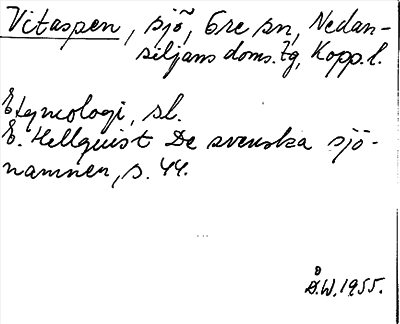 Vitaspen, sjö, Ore sn, Nedan-
siljans doms. tg, Kopp. l.
Etymologi, sl.
E. Hellquist De svenska sjö-
namnen, s. 44.
D.W. 1955.